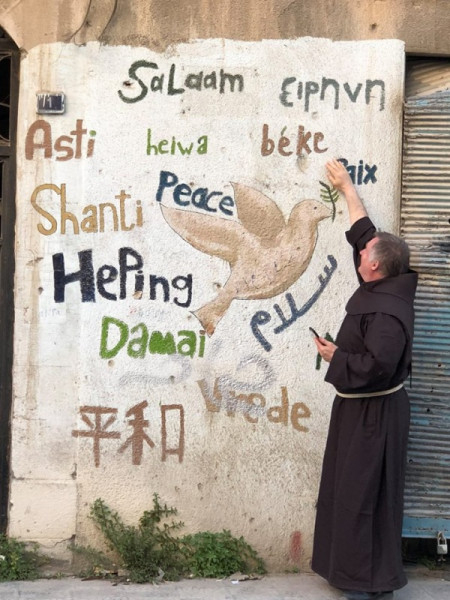 SaLaam
ειρηνη
Asti
heiwa
béke
Paix
Shanti
Peace
HePing
سلام
Damai
Vrede
平和